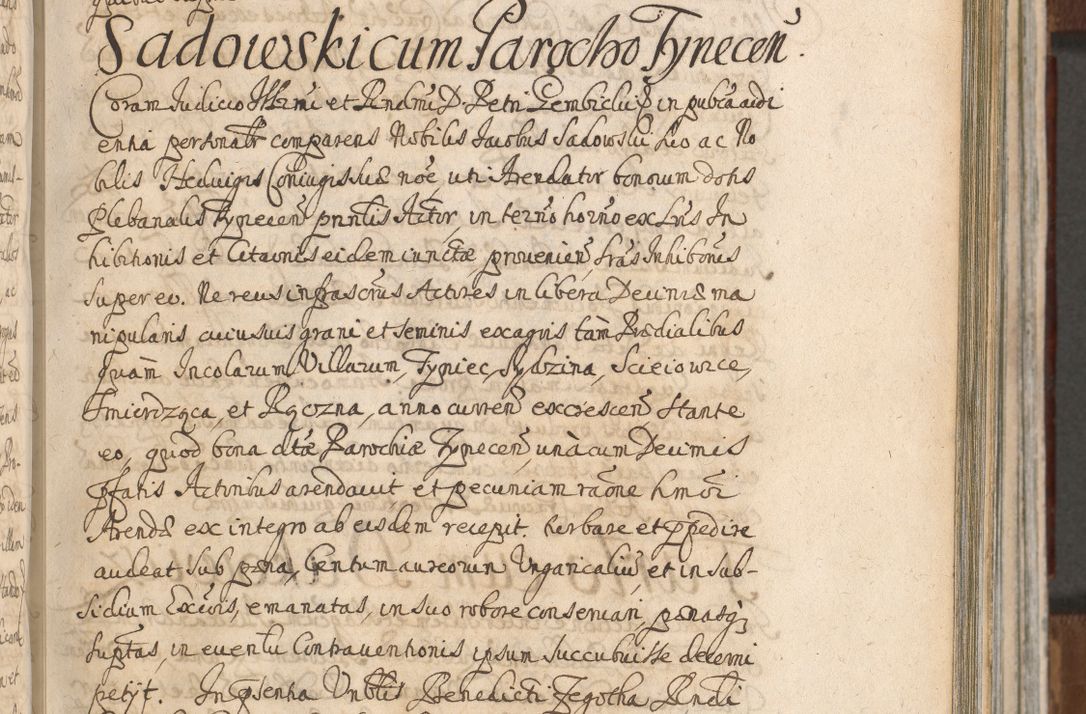 Sadowski cum Parocho Tynecen̄.
Coram Judicio Illr̄mi et Rndmi D. Petri Gembicki Ep̄i in pub̄ca audi
entia personalr̄ comparens Nobilis Jacobus Sadowski suo ac No
bilis Hedvigis Coniugis suæ noē, uti Arendator bonorum dotis
Plebanalis Tynecen̄ prn̄tis Actor, in tern̄o horn̄o ex Lr̄is In
hibitionis et Citaōnis eidem iunctæ, provenien̄, Lrās Inhibōnis
super eo. Ne reus infrascrīus Actores in libera Decimæ ma
nipularis cuiusuis grani et seminis ex agris tàm Prædialibus
quàm Incolarum Villarum, Tyniec, Sydzina, Scieiowice,
Smierdząca, et Rączna, anno curren̄ excrescen̄, stante
eo, quod bona dc̄tæ Parochiæ Tynecen̄, unà cum Decimis
pfatis Actoribus arendavit et pecuniam raōne hmōi
Arendæ ex integro ab eisdem recepit. turbare et p̄pedire
audeat sub pæna, Centum aureorum Ungaricaliū, et in sub-
sidium Excōis, emanatas, in suo robore conservari, pænasq̃
suptas, in eventu Contraventionis ipsum succubuisse decerni
petijt. In p̄sentia Vnblis Benedicti Zegotha Rndi